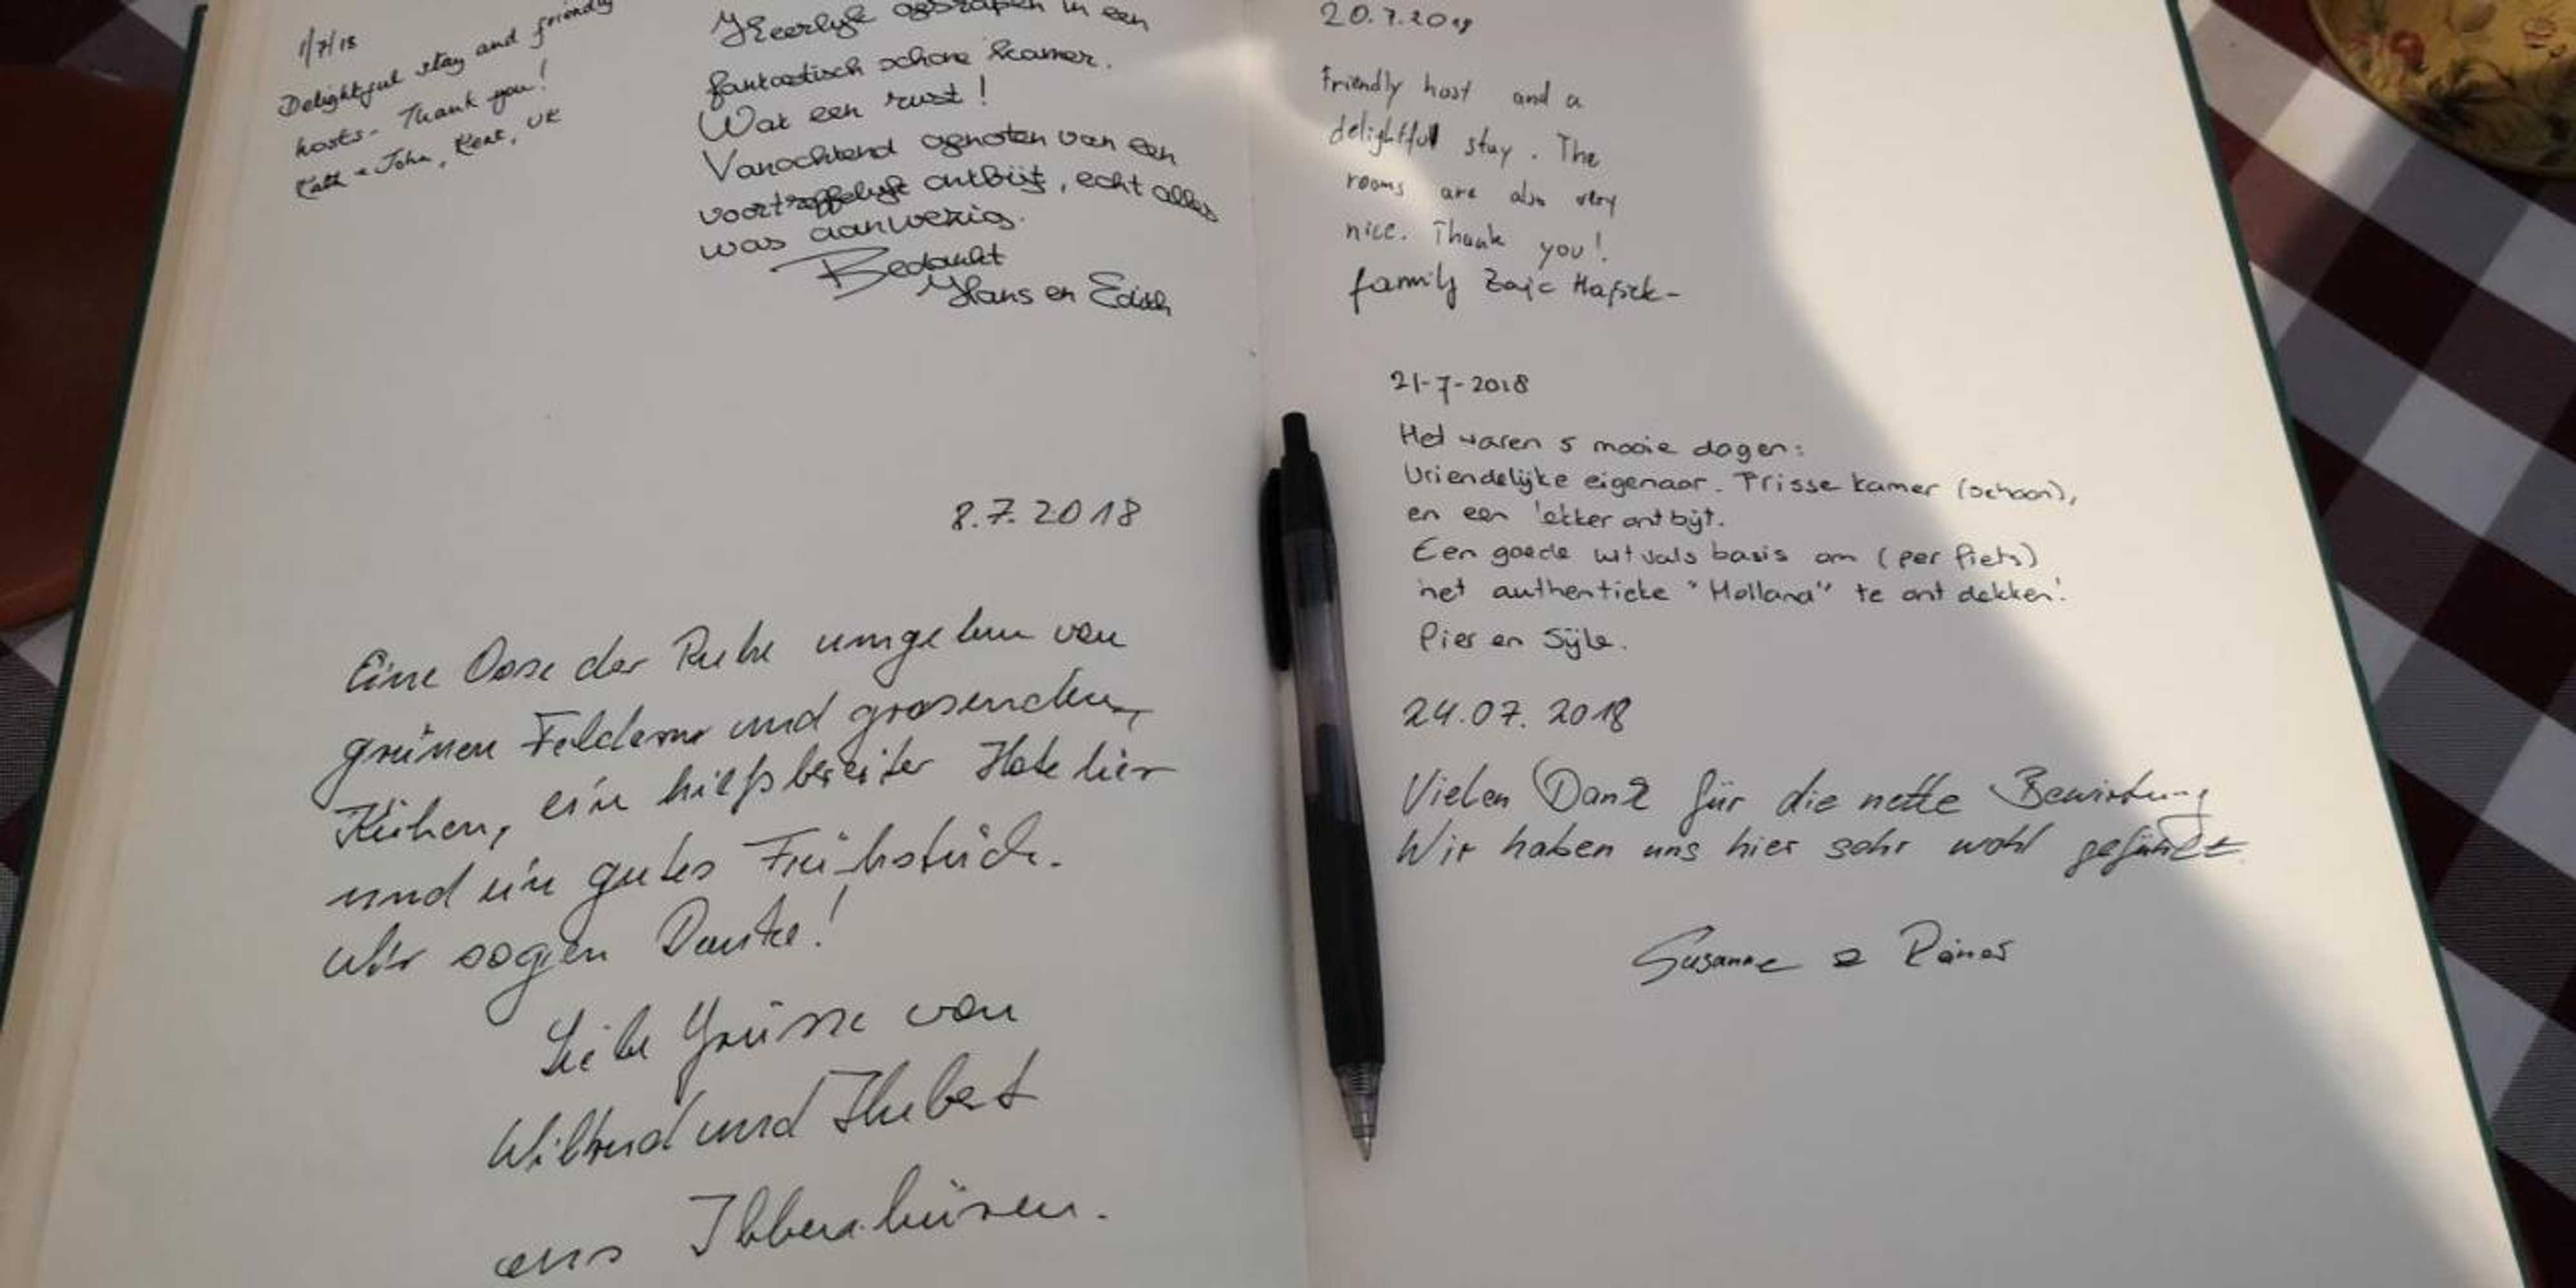 1/7/18
Delightful stay and friendly
hosts - Thank you!
John, Kent, UK
Heerlijk geslapen in een
fantastisch schone kamer.
Wat een rust!
Vanochtend genoten van een
voortreffelijk ontbijt, echt alles
was aanwezig.
Bedankt
Hans en Edith
8.7.2018
Eine Oase der Ruhe umgeben von
grünen Feldern und grasenden
Kühen, ein hilfsbereiter Hotelier
und ein gutes Frühstück.
Wir sagen Danke!
Liebe Grüsse von
Wiltrud und Hubert
aus Ibbenbüren.
20.7.2018
Friendly host and a
delightful stay. The
rooms are also very
nice. Thank you!
family Zajc
21-7-2018
Het waren 5 mooie dagen:
Vriendelijke eigenaar. Frisse kamer (schoon),
en een lekker ontbijt.
Een goede uitvals basis om (per fiets)
het authentieke "Holland" te ontdekken!
Pier en
24.07.2018
Vielen Dank für die nette Bewirtung
Wir haben uns hier sehr wohl gefühlt
Susanne & Rainer